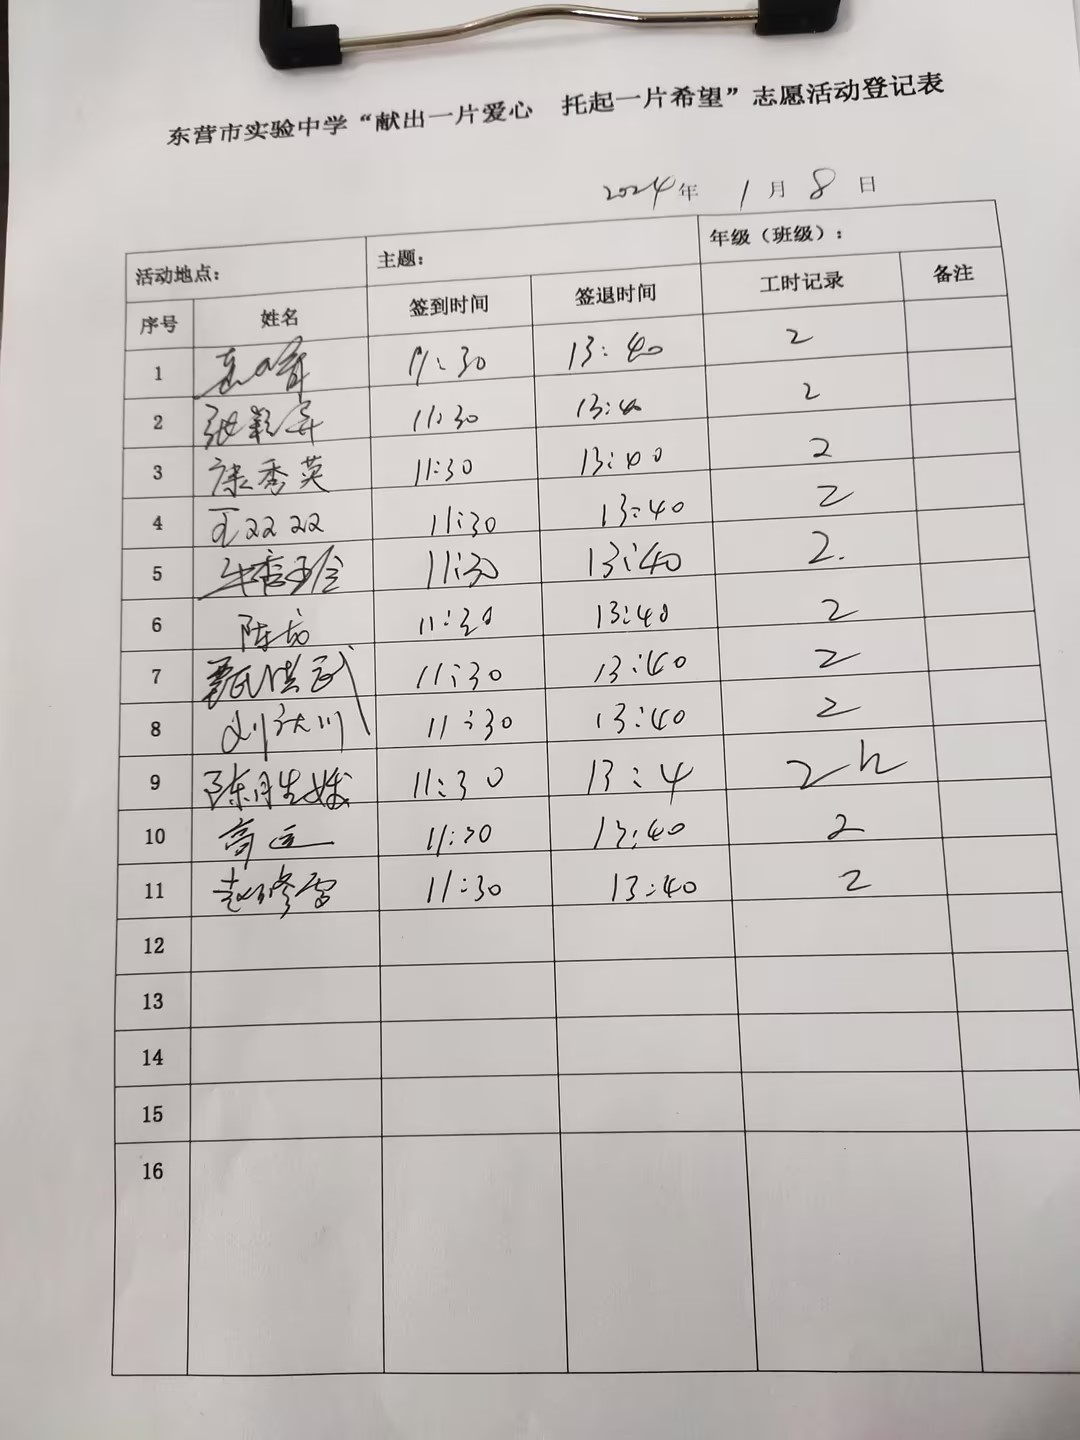 东营市实验中学“献出一片爱心 托起一片希望”志愿活动登记表
2024年 1月 8日
活动地点： 主题： 年级（班级）：
序号 姓名 签到时间 签退时间 工时记录 备注
1 11:30 13:40 2
2 张 11:30 13:40 2
3 康秀英 11:30 13:40 2
4 王 11:30 13:40 2
5 11:30 13:40 2.
6 陈 11:30 13:40 2
7 甄 11:30 13:40 2
8 刘 川 11:30 13:40 2
9 陈 11:30 13:4 2h
10 高 11:30 13:40 2
11 赵修雷 11:30 13:40 2
12
13
14
15
16